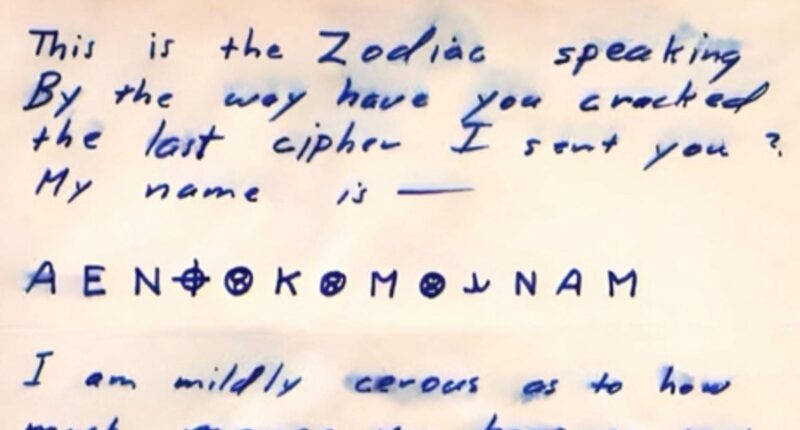 This is the Zodiac speaking
By the way have you cracked
the last cipher I sent you ?
My name is —
A E N ⌖ ⊗ K ⊗ M ⊗ ⅃ N A M
I am mildly cerous as to how